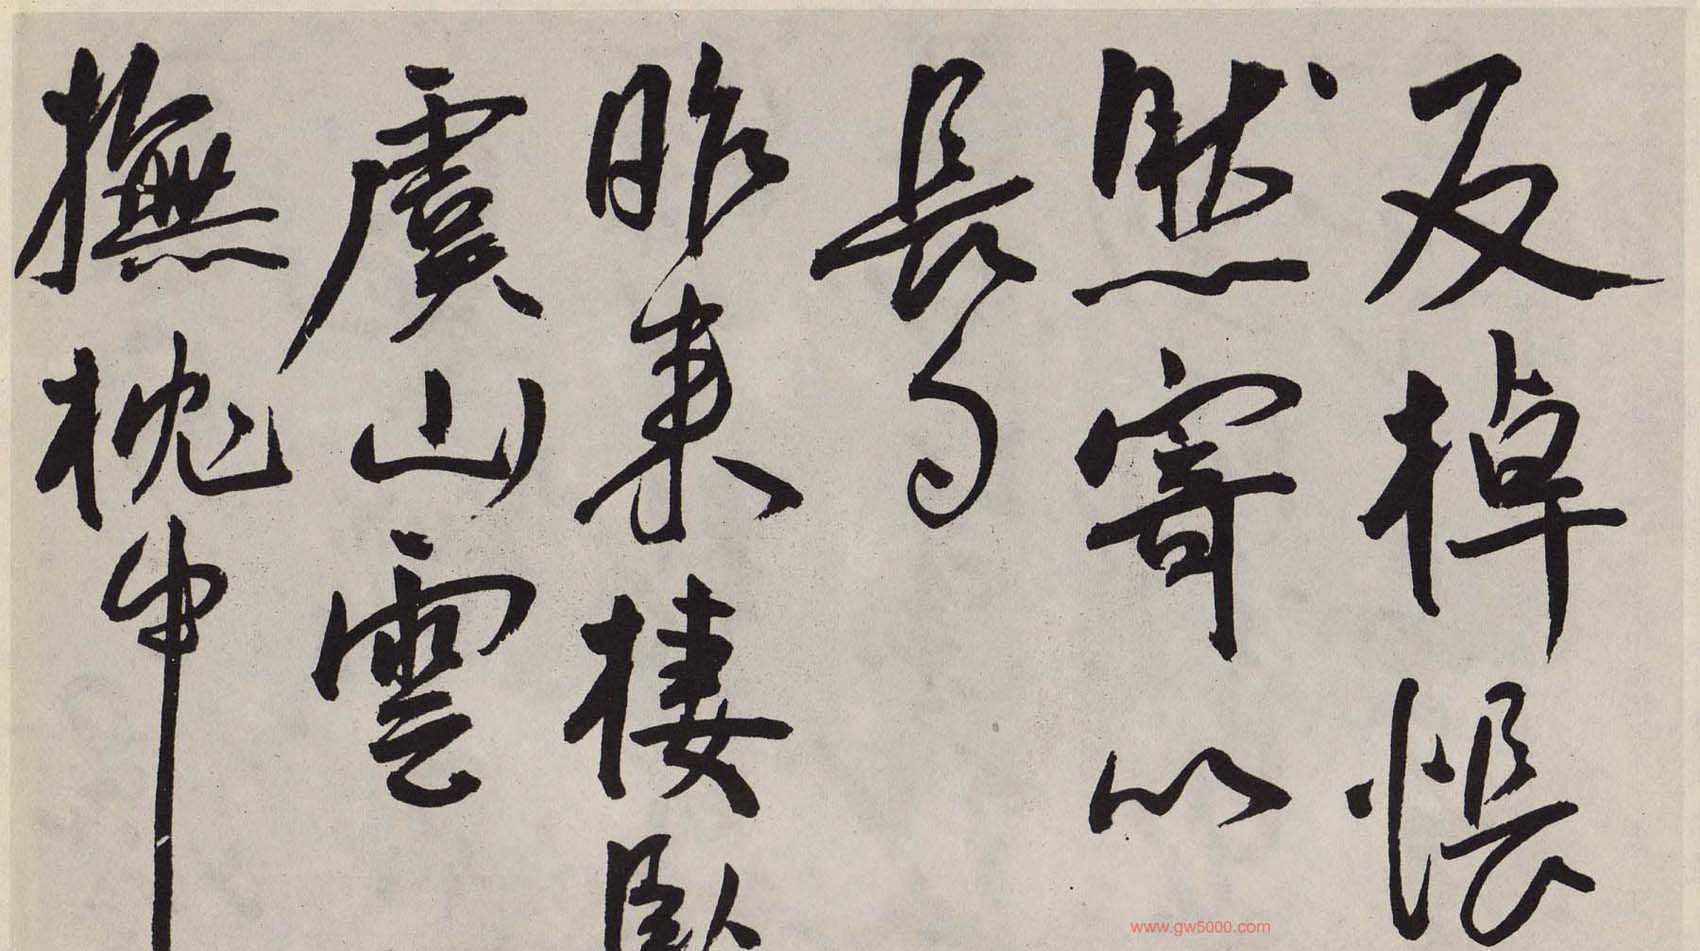 反棹悵
然寄以
長句
昨来棲卧
虞山雲
撫枕申
www.gw5000.com